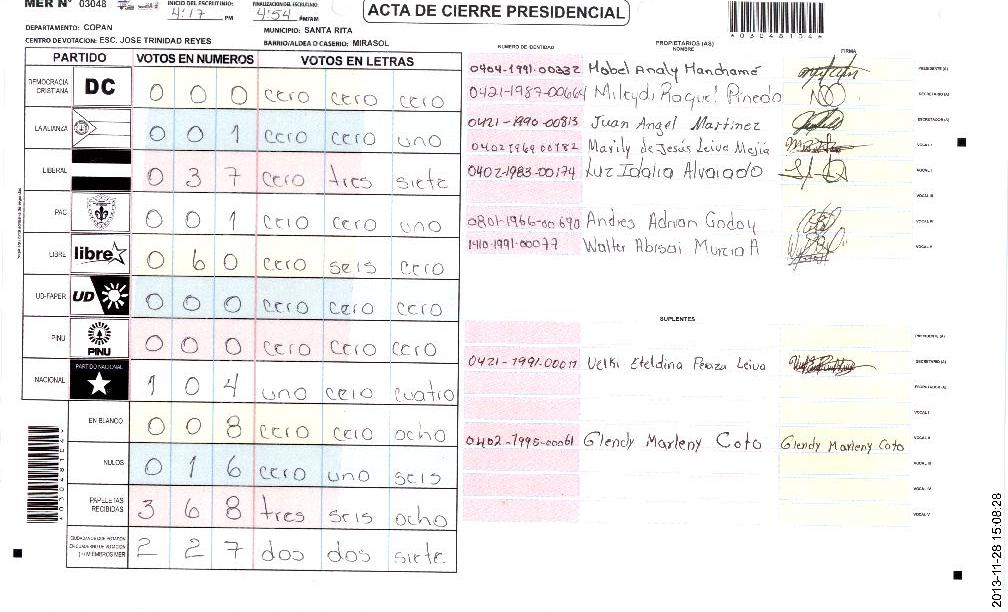 MER Nº 03048
INICIO DEL ESCRUTINIO: 4:17 PM
FINALIZACION DEL ESCRUTINIO: 4:54 PM/AM
ACTA DE CIERRE PRESIDENCIAL
DEPARTAMENTO: COPAN
MUNICIPIO: SANTA RITA
CENTRO DE VOTACION: ESC. JOSE TRINIDAD REYES
BARRIO/ALDEA O CASERIO: MIRASOL
PARTIDO VOTOS EN NUMEROS VOTOS EN LETRAS
DEMOCRACIA CRISTIANA DC 0 0 0 cero cero cero
LA ALIANZA 0 0 1 cero cero uno
LIBERAL 0 3 7 cero tres siete
PAC 0 0 1 cero cero uno
LIBRE libre 0 6 0 cero seis cero
UD-FAPER UD 0 0 0 cero cero cero
PINU PINU 0 0 0 cero cero cero
NACIONAL PARTIDO NACIONAL 1 0 4 uno cero cuatro
EN BLANCO 0 0 8 cero cero ocho
NULOS 0 1 6 cero uno seis
PAPELETAS RECIBIDAS 3 6 8 tres seis ocho
2 2 7 dos dos siete
NUMERO DE IDENTIDAD PROPIETARIOS (AS) NOMBRE FIRMA
0404-1991-00332 Mabel Analy Manchamé PRESIDENTE (A)
0421-1987-00664 Mileydi Raquel Pineda SECRETARIO (A)
0421-1990-00813 Juan Angel Martinez ESCRUTADOR (A)
0402 1969 00182 Marily de Jesús Leiva Mejía VOCAL I
0402-1983-00174 Luz Idalia Alvarado VOCAL II
VOCAL III
0801-1966-00690 Andres Adrian Godoy VOCAL IV
1410-1991-00077 Walter Abisai Murcia A VOCAL V
SUPLENTES
PRESIDENTE (A)
0421-1991-00011 Velki Eteldina Peraza Leiva SECRETARIO (A)
ESCRUTADOR (A)
VOCAL I
0402-1995-00061 Glendy Marleny Coto Glendy Marleny Coto VOCAL II
VOCAL III
VOCAL IV
VOCAL V
2013-11-28 15:08:28